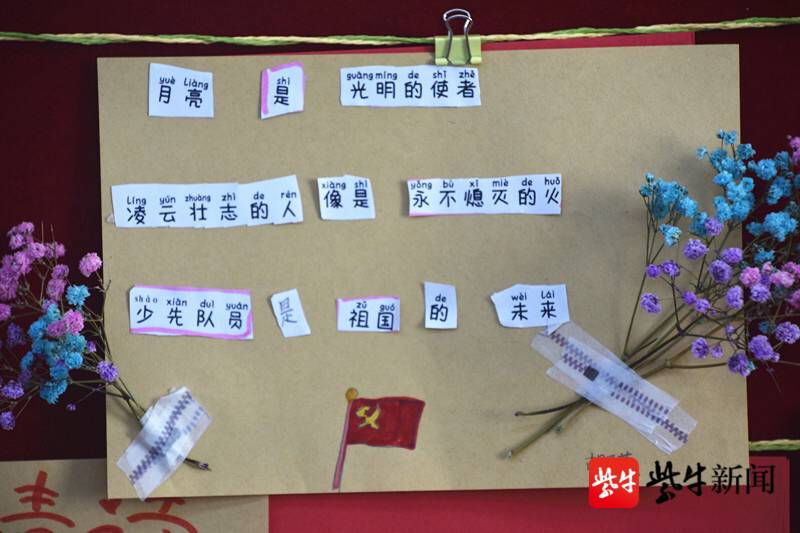 yuè liàng shì guāng míng de shǐ zhě
月亮 是 光明的使者
líng yún zhuàng zhì de rén xiàng shì yǒng bù xī miè de huǒ
凌云壮志的人 像是 永不熄灭的火
shào xiān duì yuán zǔ guó de wèi lái
少先队员 是 祖国 的 未来
紫牛 紫牛新闻